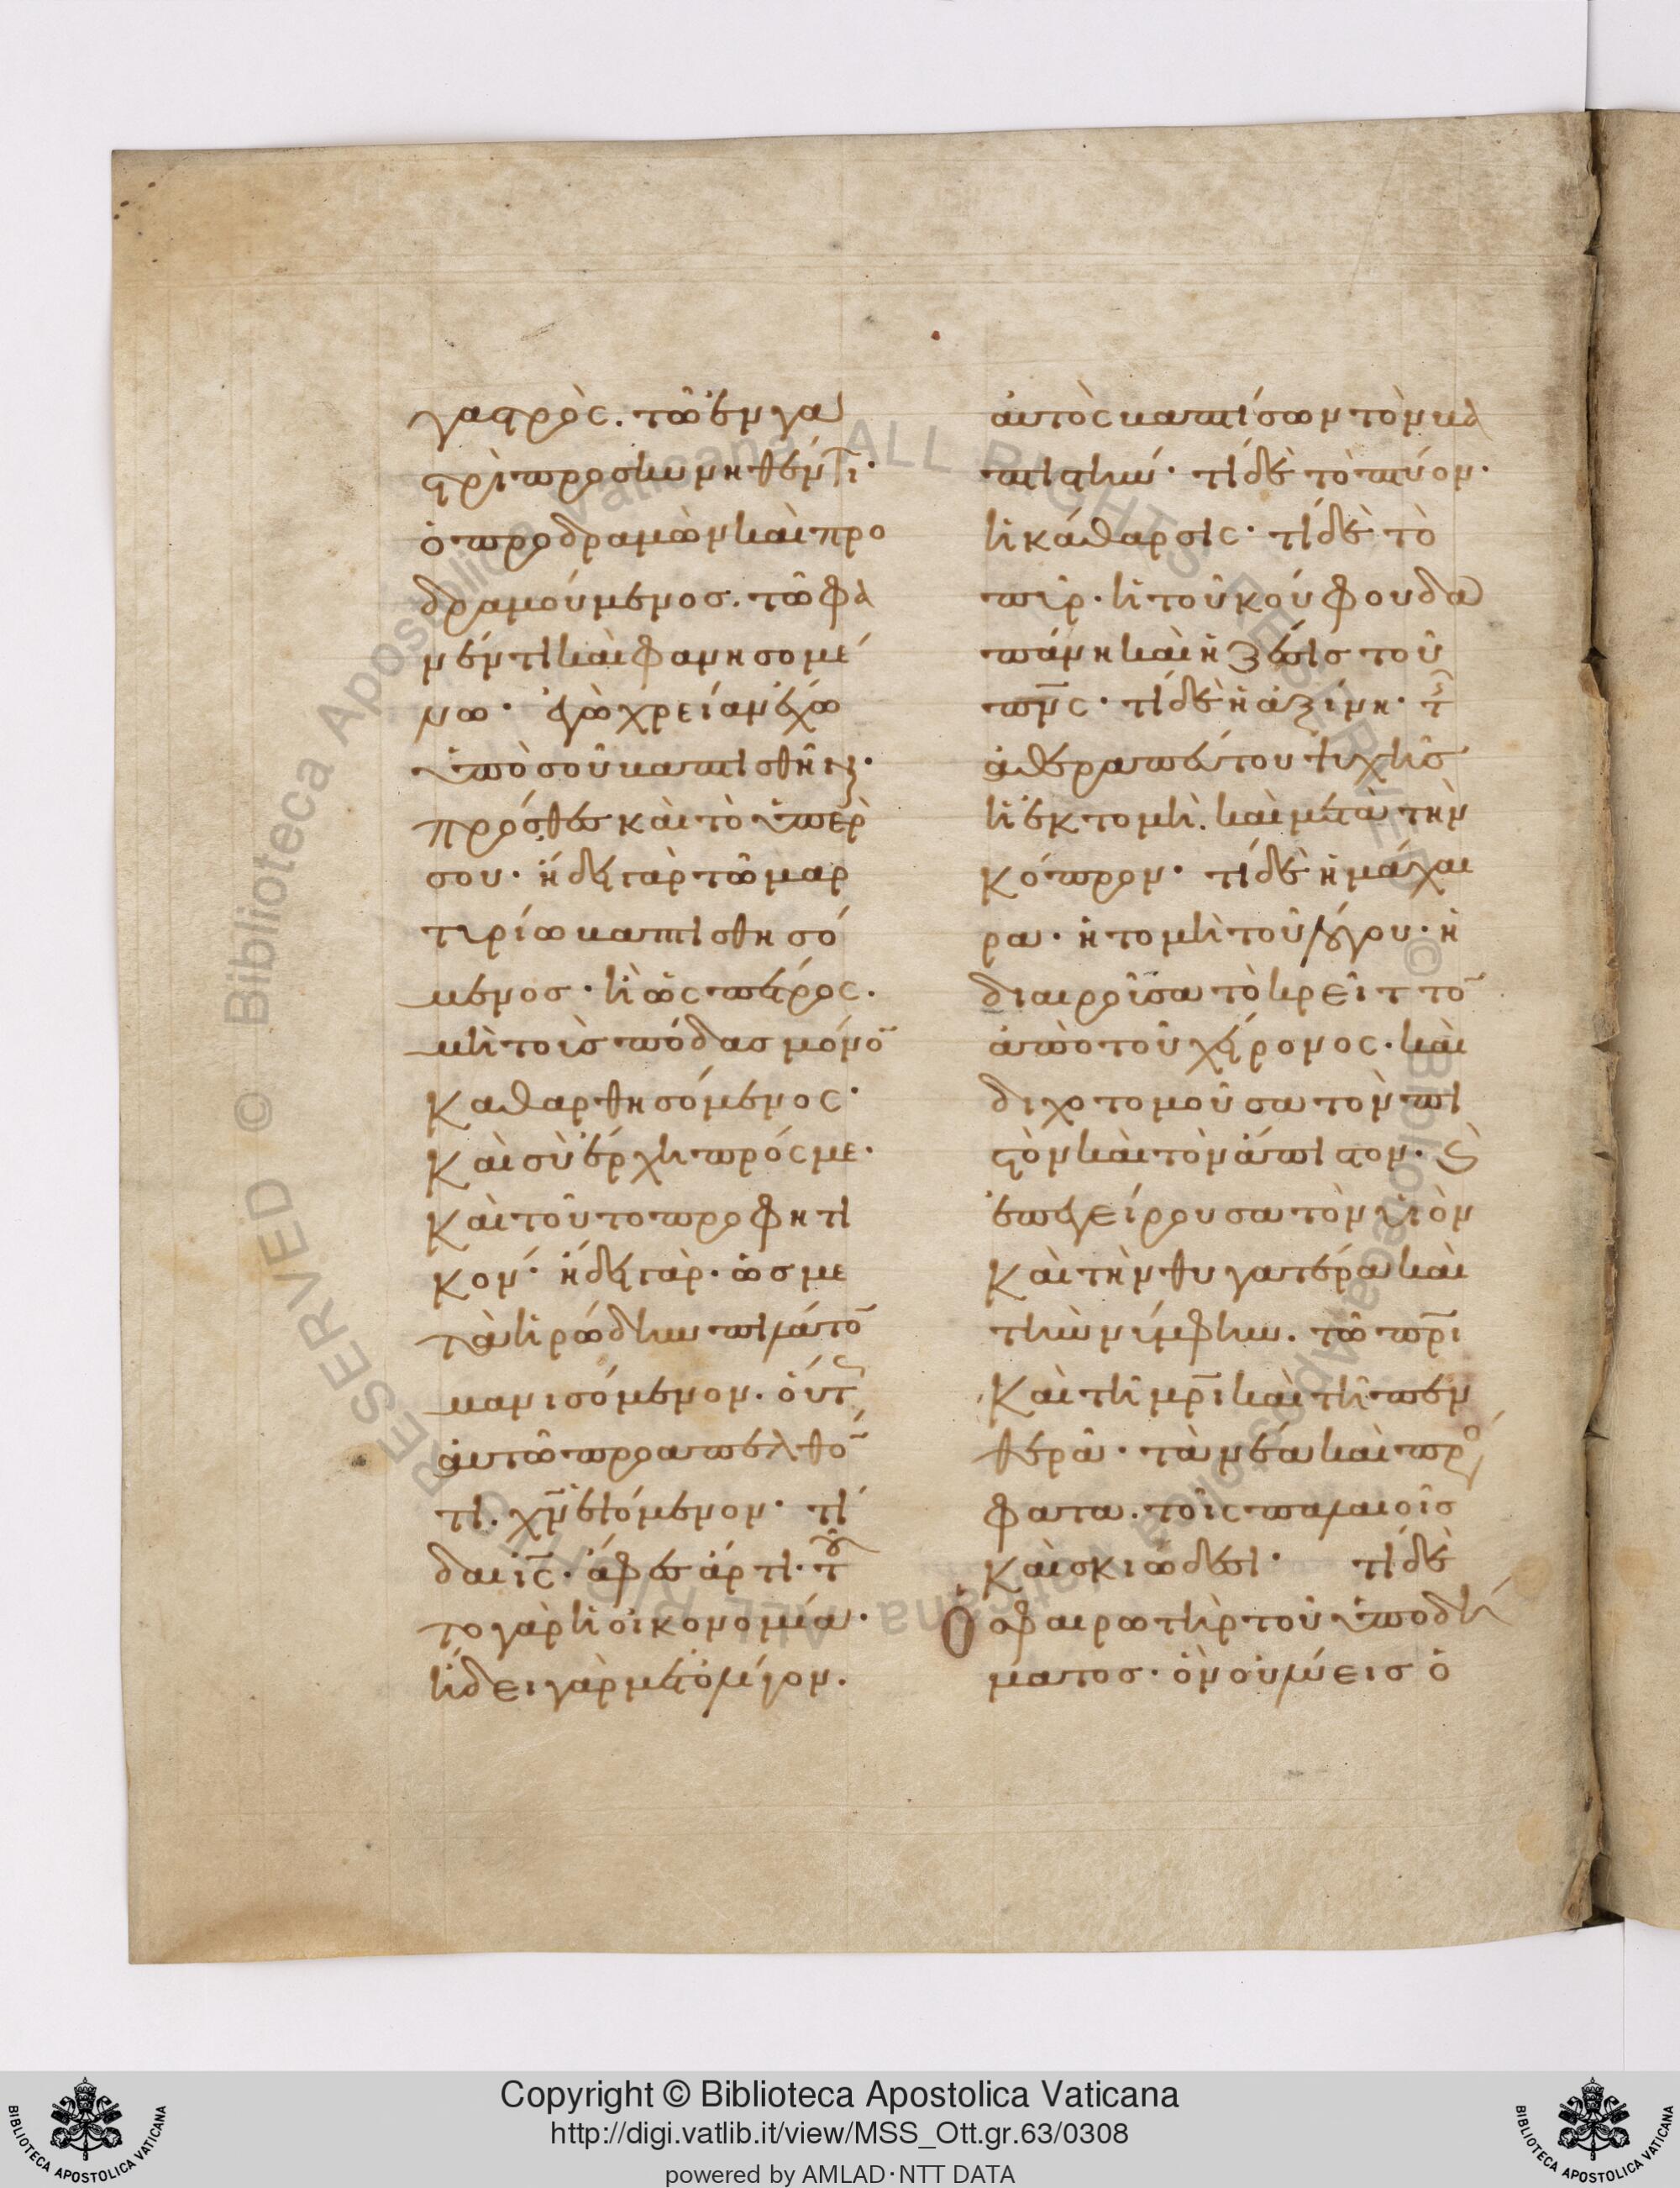 γαστρὸς. τῶ ἐν γα
στρὶ προσκυνηθέντι·
ὁ προδραμὼν καὶ προ
δραμούμενος. τῶ φα
νέντι καὶ φανησομέ
νω· ἐγὼ χρείαν ἔχω
ὑπὸ σοῦ βαπτισθῆναι·
πρόσθες καὶ τὸ ὑπὲρ
σου· ἤδει γὰρ τῶ μαρ
τυρίω βαπτισθησό
μενος· ἢ ὡς πέτρος.
μὴ τοὺς πόδας μόνον
καθαρθησόμενος·
καὶ σὺ ἔρχη πρός με·
καὶ τοῦτο προφητι
κον· ἤδει γὰρ· ὡς με
τὰ ἡρώδην πιλάτον
μανησόμενον. οὕτως
αὐτῶ προαπελθόν
τι. χ̅ν̅ ἑψόμενον· τί
δαι ι̅ς̅· ἄφες ἄρτι· τοῦ
το γὰρ ἡ οἰκονομία·
ἤδει γὰρ μετ' ὀλίγον.
αὐτὸς βαπτίσων τὸν βα
πτιστήν· τί δὲ τὸ πτύον·
ἡ κάθαρσις· τί δὲ τὸ
πῦρ· ἡ τοῦ κούφου δα
πάνη καὶ ἡ ζέσις τοῦ
π̅ν̅ς̅· τί δὲ ἡ ἀξίνη· τῆς
ἀθεραπεύτου ψυχῆς
ἡ ἐκτομὴ. καὶ μετὰ τὴν
κόπρον· τί δὲ ἡ μάχαι
ρα· ἡ τομὴ τοῦ λόγου· ἡ
διαιροῦσα τὸ κρεῖττον
ἀπὸ τοῦ χείρονος· καὶ
διχοτομοῦσα τὸν πι
στὸν καὶ τὸν ἄπιστον· καὶ
ἐπεγείρουσα τὸν υἱὸν
καὶ τὴν θυγατέρα καὶ
τὴν νύμφην. τῶ π̅ρ̅ι̅
καὶ τῆ μ̅ρ̅ι̅ καὶ τῆ πεν
θερᾶ· τὰ νέα καὶ πρόσ
φατα. τοῖς παλαιοῖς
καὶ σκιώδεσι· τί δὲ
ὁ σφαιρωτὴρ τοῦ ὑποδή
ματος· ὃν οὐ λύεις ὁ
Copyright © Biblioteca Apostolica Vaticana
http://digi.vatlib.it/view/MSS_Ott.gr.63/0308
powered by AMLAD·NTT DATA